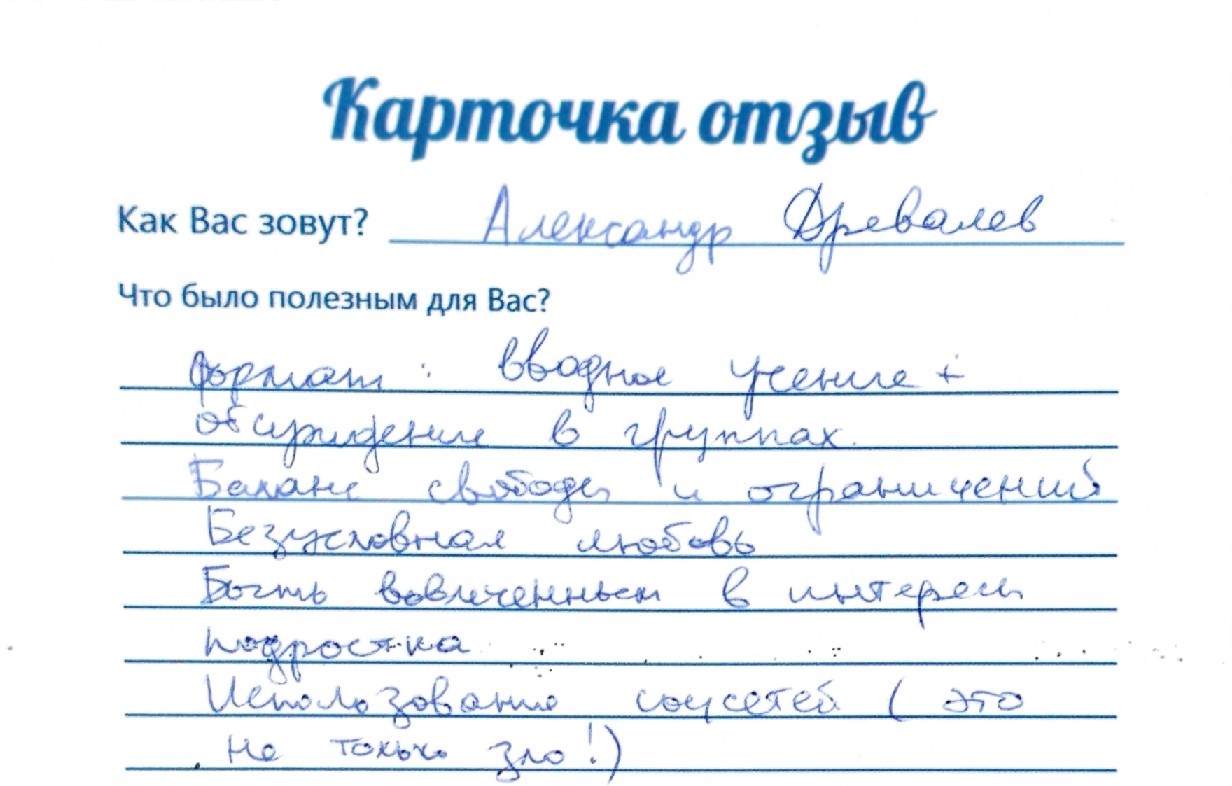 Карточка отзыв
Как Вас зовут? Александр Древалев
Что было полезным для Вас?
формат: вводное учение +
обсуждение в группах.
Баланс свободы и ограничений
Безусловная любовь
Быть вовлеченным в интересы
подростка
Использование соцсетей ( это
не только зло!)